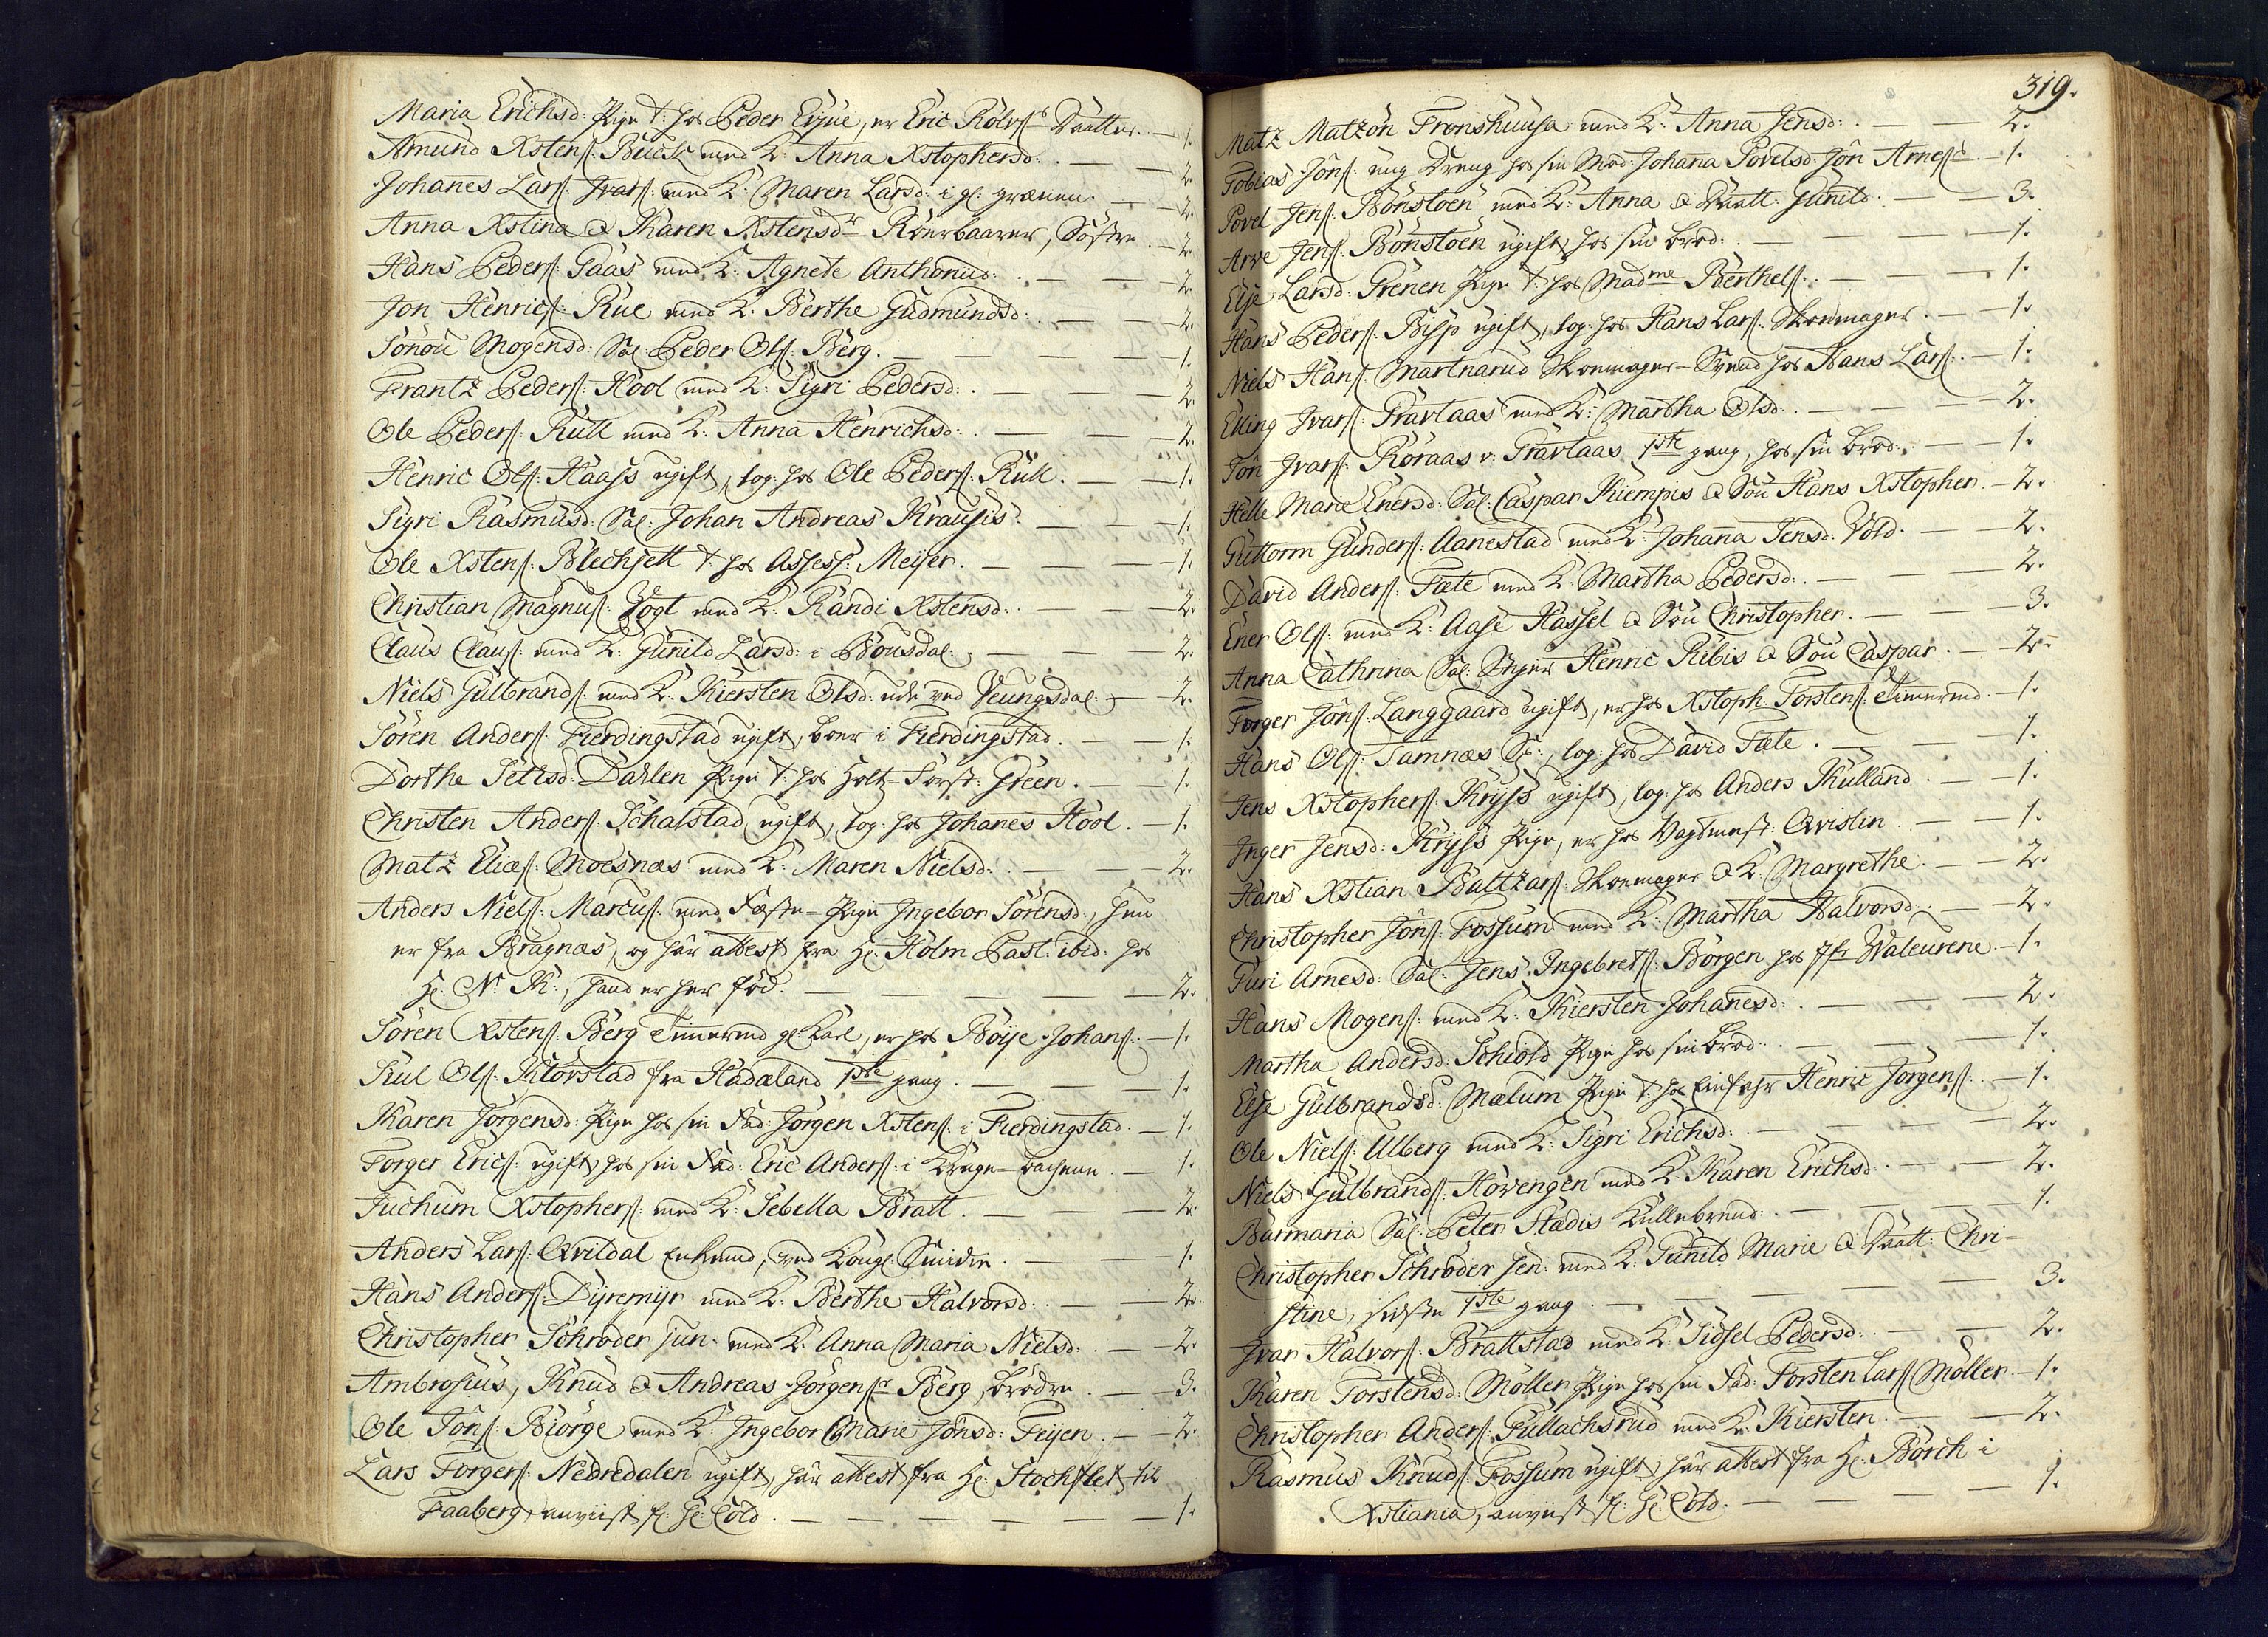 Maria Erichsd: Pige t: hos Peder Eyue, er Eric Rolvs: Daatter. — 1.
Amund Xstens: Buck med K: Anna Xstophersd: — 2.
Johanes Lars: Ivars: med K: Maren Larsd: i gl: grænen. — 2.
Anna Xstina & Karen Xstensdr Röerbaarer, Söstre. — 2.
Hans Peders: Gaas med K: Agnete Anthonid: — 2.
Jon Henrics: Rue med K: Berthe Gudmundsd: — 2.
Sönou Mogensd: Sal: Peder Ols: Berg. — 1.
Frantz Peders: Hool med K: Sigri Pedersd: — 2.
Ole Peders: Rull med K: Anna Henrichsd: — 2.
Henric Ols: Haass ugift, log: hos Ole Peders: Rull. — 1.
Sigri Rasmusd: Sal: Johan Andreas Krausis. — 1.
Ole Xstens: Blechsett t: hos Assess: Meyer. — 1.
Christian Magnus: Vogt med K: Randi Xstensd: — 2.
Claus Claus: med K: Gunild Larsd: i Bousdal: — 2.
Niels Gulbrands: med K: Kiersten Olsd: ude ved Jeungsdal: — 2.
Sören Anders: Fierdingstad ugift, boer i Fierdingstad. — 1.
Dorthe Setesd: Dahlen Pige t: hos Holtz-Först: Green. — 1.
Christen Anders: Schalstad ugift, log: hos Johanes Hool. — 1.
Matz Elias: Moesnæs med K: Maren Nielsd: — 2.
Anders Niels: Marcus: med Fæste-Pige Ingebor Sörensd:, hun
er fra Bragnæs, og har attest fra Hr: Holm Past: ibid: hos
Hr: N: K:, hand er her föd. — 2.
Sören Xstens: Berg Timermd gl: Karl, er hos Böye Johans: — 1.
Kul Ols: Klorstad fra Hadæland 1ste gang. — 1.
Karen Jörgensd: Pige hos sin Fad: Jörgen Xstens: i Fierdingstad. — 1.
Torger Erics: ugift, hos sin Fad: Eric Anders: i Krage-bachene. — 1.
Juchum Xstophers: med K: Sebella Bratt. — 2.
Anders Lars: Qvildal Enkemd, ved Kongs: Smidie. — 1.
Hans Anders: Dyremyr med K: Berthe Halvorsd: — 2.
Christopher Schroder jun: med K: Anna Maria Nielsd: — 2.
Ambrosius, Knud & Andreas Jörgensr Berg, brödre. — 3.
Ole Jöns: Biörge med K: Ingebor Marie Jönsd: Feijen. — 2.
Lars Torgers: Nedredalen ugift, har attest fra Hr: Stochflet til
Faaberg, anviist fr: Hr: Cold. — 1.
319.
Matz Matzön Fronshuusa med K: Anna Jensd: — 2.
Tobias Jöns: ung Dreng hos sin Mod: Johana Povelsd: Jön Arnes: — 1.
Povel Jens: Bönstoen med K: Anna & Daatt: Gunild. — 3.
Arve Jens: Bönstoen ugift, hos sin brod: — 1.
Else Larsd: Grenen Pige t: hos Madme Berthels: — 1.
Hans Peders: Bisp ugift, log: hos Hans Lars: Skomager. — 1.
Niels Hans: Martnarud Skomager-Svend hos Hans Lars: — 1.
Elling Ivars: Gravlaas med K: Martha Olsd: — 2.
Jön Ivars: Roraas v: Gravlaas 1ste gang, hos sin brod: — 1.
Helle Marie Enersd: Sal: Caspar Kiempis & Sön Hans Xstopher. — 2.
Guttorm Gunders: Aanestad med K: Johana Jensd: Vold. — 2.
David Anders: Fæte med K: Martha Pedersd: — 2.
Ener Ols: med K: Aase Hassel & Sön Christopher. — 3.
Anna Cathrina Sal: Henric Ribis & Sön Caspar. — 2.
Torger Jöns: Langgaard ugift, er hos Xstoph: Torstens: Timermd. — 1.
Hans Ols: Tamnæs, log: hos David Fæte. — 1.
Jens Xstophers: Kryss ugift, log: hos Anders Kulland. — 1.
Inger Jensd: Kryss Pige, er hos Vagtmest: Qvislin — 1.
Hans Xstian Baltzars: Skomager & K: Margrethe. — 2.
Christopher Jöns: Fossum med K: Martha Halvorsd: — 2.
Guri Arnesd: Sal: Jens Ingebrets: Börgen hos Jfr Waleurene. — 1.
Hans Mogens: med K: Kiersten Johanesd: — 2.
Martha Andersd: Schiold Pige hos sin brod: — 1.
Else Gulbrandsd: Mælum Pige t: hos Henric Jörgens: — 1.
Ole Niels: Ulberg med K: Sigri Erichsd: — 2.
Niels Gulbrands: Hovengen med K: Karen Erichsd: — 2.
Barmaria Sal: Peter Stadis Kullebrend: — 1.
Christopher Schroder Sen: med K: Gunild Marie & Daatt: Chri-
stine, sidste 1ste gang. — 3.
Ivar Halvors: Brattstad med K: Sidsel Pedersd: — 2.
Karen Torstensd: Möller Pige hos sin Fad: Torsten Lars: Möller. — 1.
Christopher Anders: Gullachsrud med K: Kiersten. — 2.
Rasmus Knuds: Fossum ugift, har attest fra Hr: Borch i
Xstiania, anviist fr: Hr: Cold. — 1.